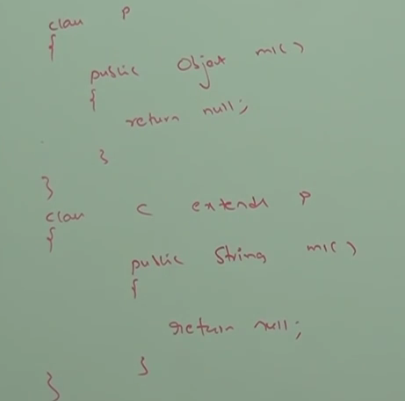 class P
{
public Object m1()
{
return null;
}
}
class C extends P
{
public String m1()
{
return null;
}
}